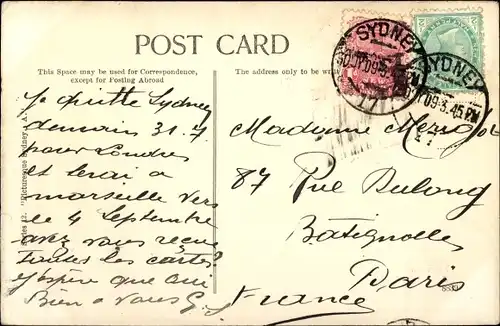 POST CARD
This Space may be used for Correspondence,
except for Posting Abroad
The address only to be
SYDNEY
SYDNEY
Je quitte Sydney
demain 31.7
pour Londres
et serai a
marseille vers
le 4 Septembre
avez vous reçu
toutes les cartes?
J'espère que oui
Bien a Vous G.
"Picturesque Sydney
Madame
87 Rue Dulong
Batignolles
Paris
France